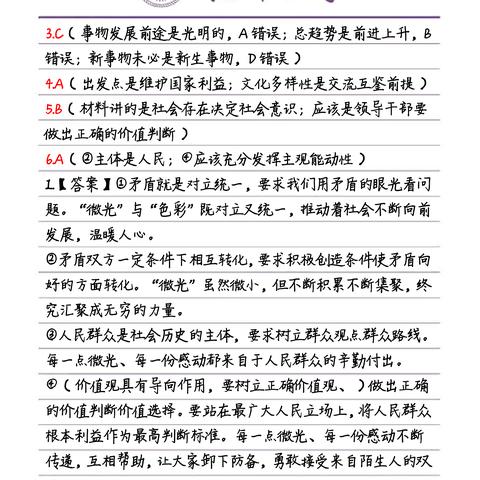 3.C（事物发展前途是光明的，A错误；总趋势是前进上升，B
错误；新事物未必是新生事物，D错误）
4.A（出发点是维护国家利益；文化多样性是交流互鉴前提）
5.B（材料讲的是社会存在决定社会意识；应该是领导干部要
做出正确的价值判断）
6.A（②主体是人民；④应该充分发挥主观能动性）
1.【答案】①矛盾就是对立统一，要求我们用矛盾的眼光看问
题。“微光”与“色彩”既对立又统一，推动着社会不断向前
发展，温暖人心。
②矛盾双方一定条件下相互转化，要求积极创造条件使矛盾向
好的方面转化。“微光”虽然微小，但不断积累不断集聚，终
究汇聚成无穷的力量。
③人民群众是社会历史的主体，要求树立群众观点群众路线。
每一点微光、每一份感动都来自于人民群众的辛勤付出。
④（价值观具有导向作用，要树立正确价值观、）做出正确
的价值判断价值选择。要站在最广大人民立场上，将人民群众
根本利益作为最高判断标准。每一点微光、每一份感动不断
传递，互相帮助，让大家卸下防备，勇敢接受来自陌生人的双